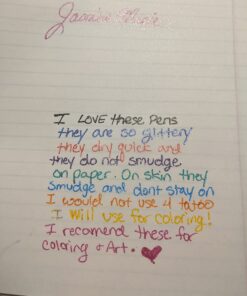 I LOVE these Pens
they are so glittery
they dry quick and
they do not smudge
on paper. On skin they
smudge and dont stay on
I would not use 4 tatoo
I will use for coloring!
I recomend these for
coloring + Art. ♥